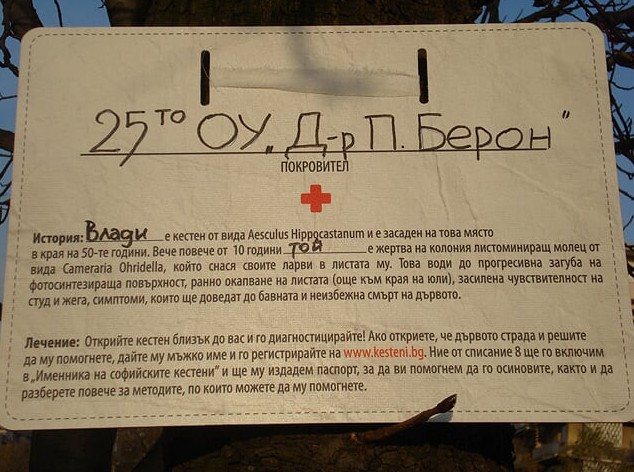 25ТО ОУ „Д-р П. Берон"
ПОКРОВИТЕЛ
История: Влади е кестен от вида Aesculus Hippocastanum и е засаден на това място
в края на 50-те години. Вече повече от 10 години той е жертва на колония листоминиращ молец от
вида Cameraria Ohridella, който снася своите ларви в листата му. Това води до прогресивна загуба на
фотосинтезираща повърхност, ранно окапване на листата (още към края на юли), засилена чувствителност на
студ и жега, симптоми, които ще доведат до бавната и неизбежна смърт на дървото.
Лечение: Открийте кестен близък до вас и го диагностицирайте! Ако откриете, че дървото страда и решите
да му помогнете, дайте му мъжко име и го регистрирайте на www.kesteni.bg. Ние от списание 8 ще го включим
в „Именника на софийските кестени" и ще му издадем паспорт, за да ви помогнем да го осиновите, както и да
разберете повече за методите, по които можете да му помогнете.